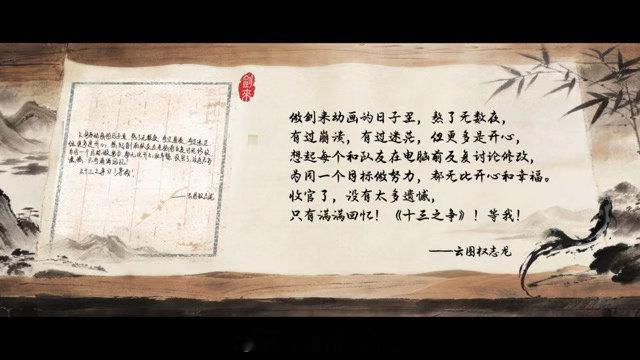 剑来
做剑来动画的日子里，熬了无数夜，
有过崩溃，有过迷茫，但更多是开心，
想起每个和队友在电脑前反复讨论修改，
为同一个目标做努力，都无比开心和幸福。
收官了，没有太多遗憾，
只有满满回忆！《十三之争》！等我！
——云图权志龙
《十三之争》！等我！
——云图权志龙